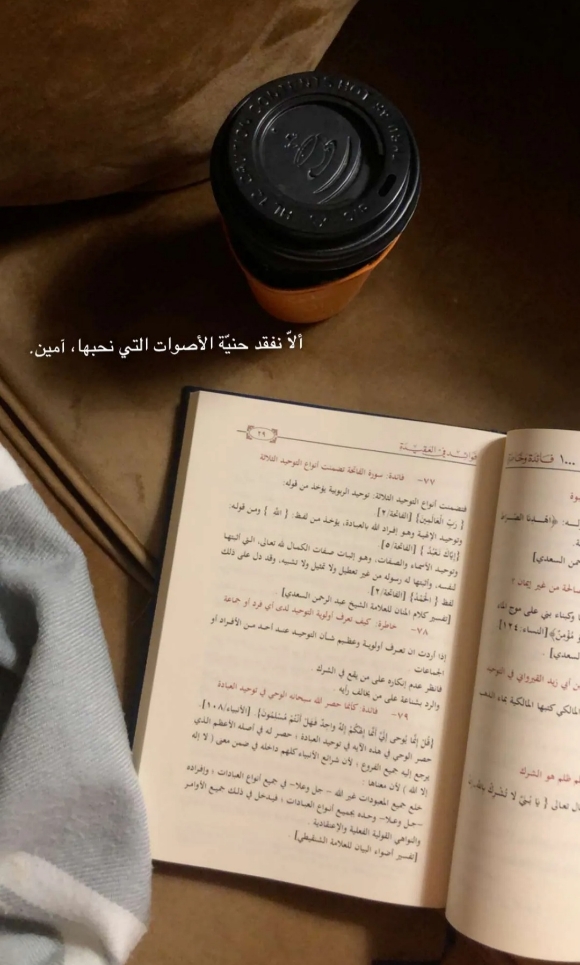 ألاّ نفقد حنيّة الأصوات التي نحبها، آمين.
٢٩
فوائد في العقيدة
٧٧- فائدة: سورة الفاتحة تضمنت أنواع التوحيد الثلاثة
فتضمنت أنواع التوحيد الثلاثة: توحيد الربوبية يؤخذ من قوله:
{ رَبِّ الْعَالَمِينَ} [الفاتحة/٢].
وتوحيد الإلهية وهو إفراد الله بالعبادة، يؤخذ من لفظ: { الله } ومن قوله:
{إِيَّاكَ نَعْبُدُ } [الفاتحة/٥].
وتوحيد الأسماء والصفات، وهو إثبات صفات الكمال لله تعالى، التي أثبتها
لنفسه، وأثبتها له رسوله من غير تعطيل ولا تمثيل ولا تشبيه، وقد دل على ذلك
لفظ { الْحَمْدُ} [الفاتحة/٢].
[تفسير كلام المنان للعلامة الشيخ عبد الرحمن السعدي]
٧٨- خاطرة: كيف تعرف أولوية التوحيد لدى أي فرد او جماعة
إذا أردت ان تعرف أولوية وعظيم شأن التوحيد عند أحد من الأفراد أو
الجماعات
فانظر عدم إنكاره على من يقع في الشرك
والرد بشناعة على من يخالف رأيه .
٧٩- فائدة كأنما حصر لله سبحانه الوحي في توحيد العبادة
{قُلْ إِنَّمَا يُوحَى إِلَيَّ أَنَّمَا إِلَهُكُمْ إِلَهٌ وَاحِدٌ فَهَلْ أَنْتُمْ مُسْلِمُونَ}. [الأنبياء/١٠٨].
حصر الوحي في هذه الآيه في توحيد العبادة ؛ حصر له في أصله الأعظم الذي
يرجع إليه جميع الفروع ؛ لأن شرائع الأنبياء كلهم داخله في ضمن معنى ( لا إله
إلا الله ) لأن معناها :
خلع جميع المعبودات غير الله – جل وعلا– في جميع أنواع العبادات ؛ وإفراده
–جل وعلا– وحده بجميع أنواع العبادات ؛ فيدخل في ذلك جميع الأوامر
والنواهي القولية الفعلية والإعتقادية .
[تفسير أضواء البيان للعلامة الشنقيطي]
١٠٠٠ فائدة
{اهْدِنَا الصِّرَاطَ
من السعدي]
لحة من غير إيمان ؟
كبناء بني على موج لك
مُؤْمِنٌ} [النساء: ١٢٤]
السعدي] .
أبي زيد القيرواني في التوحيد
المالكي كتبها المالكية بماء الذهب
ظلم هو الشرك
ال تعالى { يَا بُنَيَّ لَا تُشْرِكْ بِاللهِ